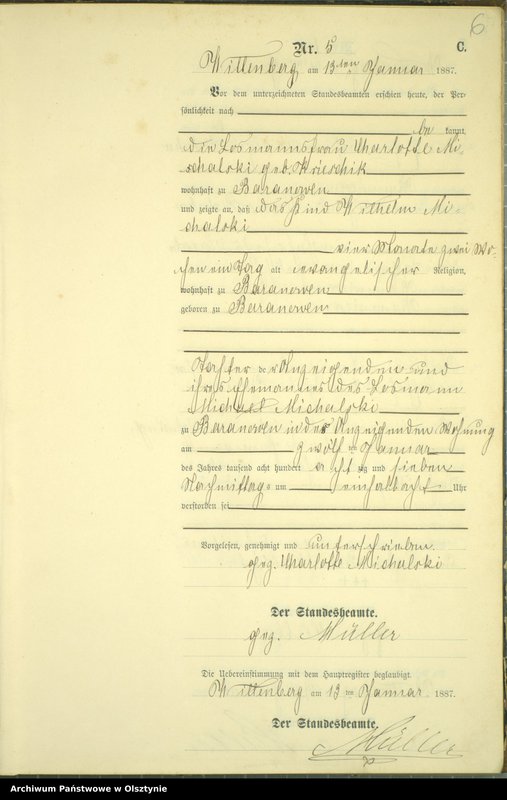 6
Nr. 5 C.
Wittenberg, am 13ten Januar 1887.
Vor dem unterzeichneten Standesbeamten erschien heute, der Per-
sönlichkeit nach
be kannt,
die Losmannsfrau Charlotte Mi-
chalski geb.
wohnhaft zu Baranowen
und zeigte an, daß das Kind Wilhelm Mi-
chalski
vier Monate zwei Wo-
chen ein Tag alt evangelischer Religion,
wohnhaft zu Baranowen
geboren zu Baranowen
der Anzeigenden und
ihres Ehemannes des Losmann
Michael Michalski
zu Baranowen in der Anzeigenden Wohnung
am zwölften Januar
des Jahres tausend acht hundert achtzig und sieben
Nachmittags um einhalbacht Uhr
verstorben sei
Vorgelesen, genehmigt und unterschrieben.
gez. Charlotte Michalski
Der Standesbeamte.
gez. Müller
Die Uebereinstimmung mit dem Hauptregister beglaubigt.
Wittenberg am 13ten Januar 1887.
Der Standesbeamte.
Müller
Archiwum Państwowe w Olsztynie